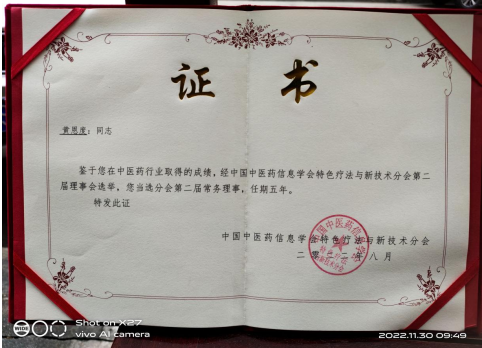 证 书
黄恩度：同志
鉴于您在中医药行业取得的成绩，经中国中医药信息学会特色疗法与新技术分会第二
届理事会选举，您当选分会第二届常务理事，任期五年。
特发此证
中国中医药信息学会特色疗法与新技术分会
二零二二年八月
Shot on X27
vivo AI camera
2022.11.30 09:49